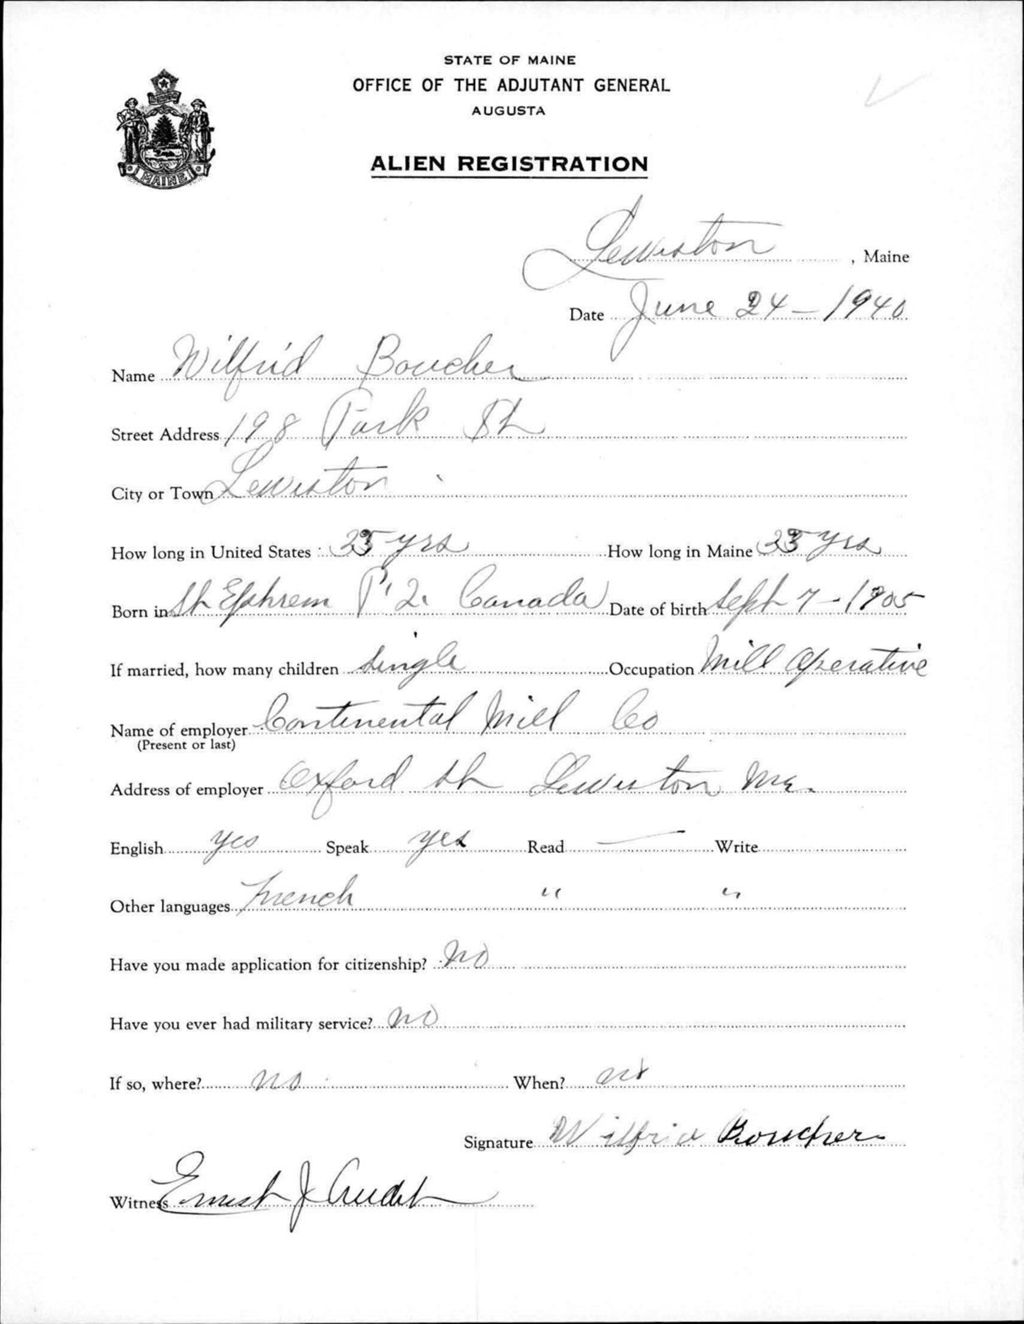 STATE OF MAINE
OFFICE OF THE ADJUTANT GENERAL
AUGUSTA
MAINE
ALIEN REGISTRATION
Lewiston, Maine
Date June 24 - 1940
Name Wilfrid Boucher
Street Address 198 Park St
City or Town Lewiston
How long in United States yrs How long in Maine yrs
Born in St Ephrem P.Q. Canada Date of birth Sept 7 - 1905
If married, how many children Single Occupation Mill Operative
Name of employer Continental Mill Co
(Present or last)
Address of employer Oxford St Lewiston Me.
English yes Speak yes Read — Write
Other languages French " "
Have you made application for citizenship? No
Have you ever had military service? No
If so, where? no When? no
Signature Wilfrid Boucher
Witness Ernest J Audet